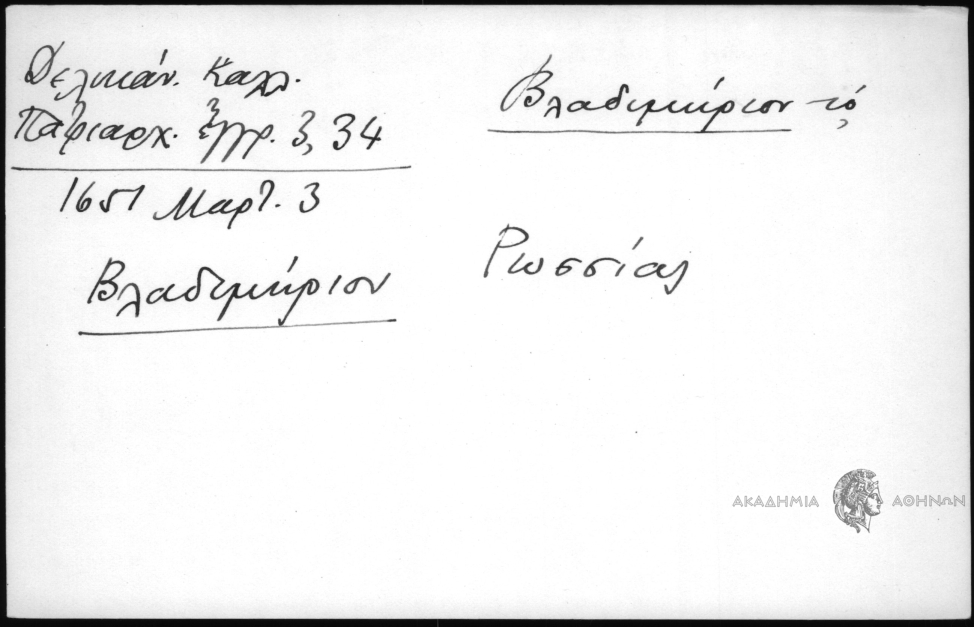 Δελικάν. Καλλ.
Πατριαρχ. ἔγγρ. 3, 34
1651 Μαρτ. 3
Βλαδιμήριον
Βλαδιμήριον τό,
Ρωσσίας
ΑΚΑΔΗΜΙΑ ΑΘΗΝΩΝ